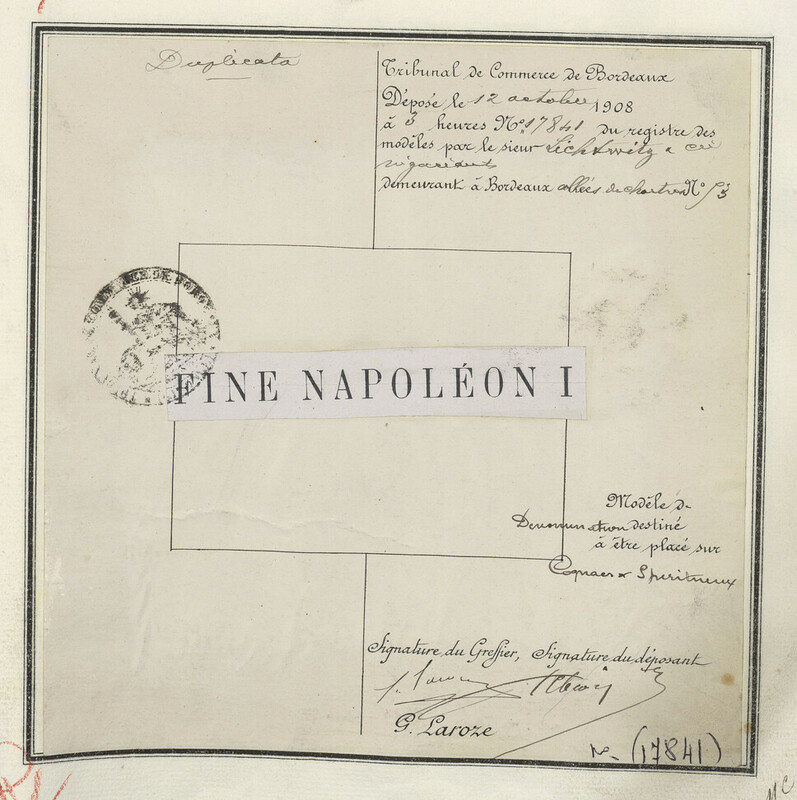 Duplicata
Tribunal de Commerce de Bordeaux
Déposé le 12 octobre 1908
à 3 heures No. 17841 du registre des
modèles par le sieur Lichtwitz & Cie
négociants
demeurant à Bordeaux allées de chartres No 53
FINE NAPOLÉON I
Modèle de
Denomination destiné
à être placé sur
Cognacs & Spiritueux
Signature du Greffier, Signature du déposant
G. Laroze
No (17841)